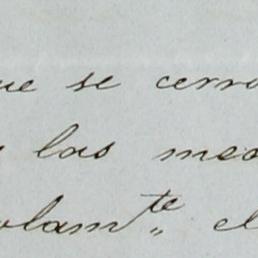 ue se cerro
las mes
olam.te el